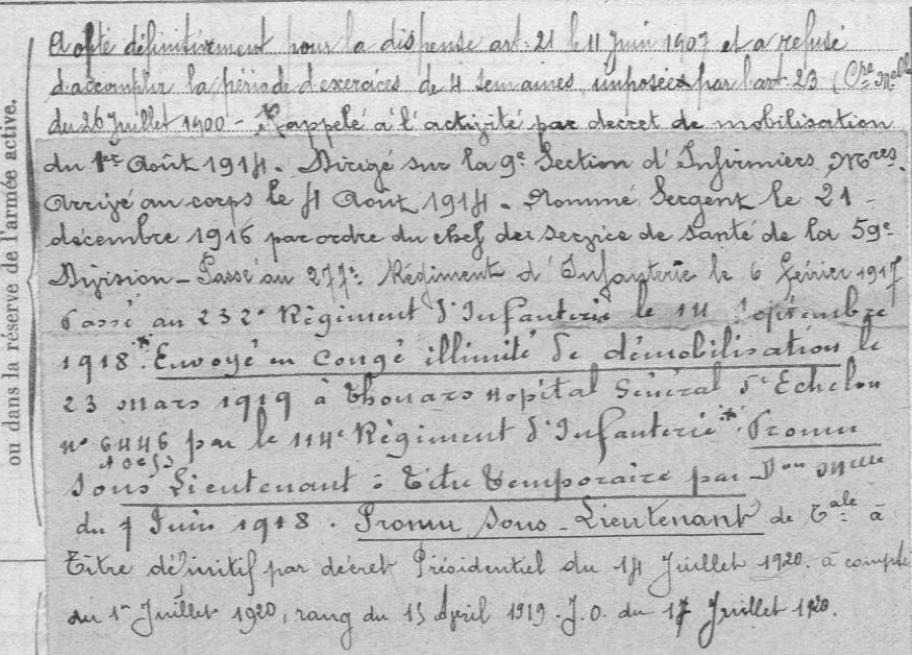 ou dans la réserve de l'armée active.
A opté définitivement pour la dispense art: 21 le 11 Juin 1907 et a refusé
d'accomplir la période d'exercices de 4 semaines imposée par l'art 23 (Cre Melle
du 26 Juillet 1900 - Rappelé à l'activité par décret de mobilisation
du 1er Août 1914. Dirigé sur la 9e Section d'Infirmiers Mres.
Arrivé au corps le 4 Août 1914 - Nommé Sergent le 21
décembre 1916 par ordre du chef du service de santé de la 59e
Division - Passé au 277e Régiment d'Infanterie le 6 février 1917
Passé au 232e Régiment d'Infanterie le 14 Septembre
1918*. Envoyé en Congé illimité de démobilisation le
23 mars 1919 à Thouars Hopital Général d'Echelon
n° 6446 par le 114e Régiment d'Infanterie*. Promu
Sous Lieutenant à Titre Temporaire par Don Melle
du 7 Juin 1918. Promu Sous-Lieutenant de Tale à
Titre définitif par décret Présidentiel du 14 Juillet 1920. à compte
du 1er Juillet 1920, rang du 15 Avril 1919. J.O. du 17 Juillet 1920.